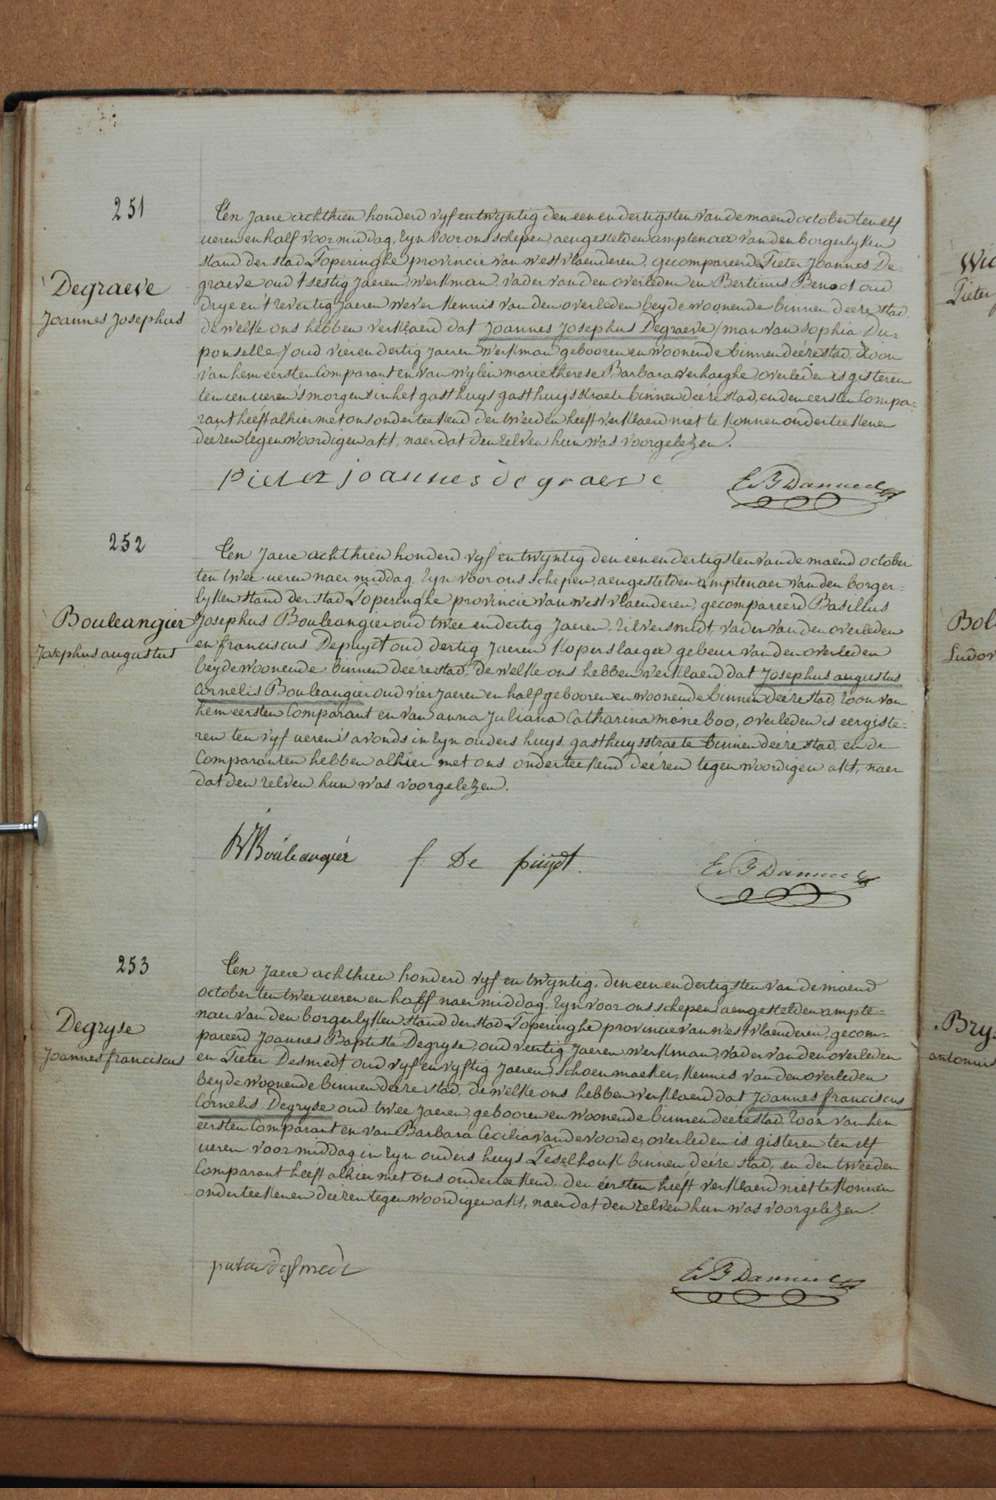 251
Degraeve
Joannes Josephus
Ten Jaere achthien honderd vyf en twyntig den een en dertigsten van de maend october ten elf
ueren en half voormiddag, Zyn voor ons schepen, aengestelden amptenaer van den borgerlyken
stand der stad Poperinghe provincie van westvlaenderen, gecompareerd Pieter Joannes De=
graeve oud t'sestig Jaeren, werkman, vader van den overleden en Bertinus Benoot oud
drye en t'zeventig Jaeren wever kennis van den overleden beyde woonende binnen deere stad,
de welke ons hebben verklaerd dat Joannes Josephus Degraeve /man van Sophia Du=
ponselle/ oud vier en dertig Jaeren werkman gebooren en woonende binnen deere stad, Zoon
van hem eersten Comparant en van wylen marie therese Barbara verhaeghe overleden is gisteren
ten een ueren 's morgens in het gasthuys gasthuys straete binnen deere stad, en den eersten Compa=
rant heeft alhier met ons onderteekend den tweeden heeft verklaerd niet te konnen onderteekenen
deezen tegenwoordigen akt, naer dat den zelven hun was voorgelezen.
Pieter joannes de graeve
252
Boulangier
Josephus augustus
Ten Jaere achthien honderd vyf en twyntig den een en dertigsten van de maend october
ten twee ueren naermiddag, Zyn voor ons schepen, aengestelden amptenaer van den borger=
lyken stand der stad Poperinghe provincie van westvlaenderen, gecompareerd Basilius
Josephus Bouleangier oud twee en dertig Jaeren, Zilversmidt, vader van den overleden
en franciscus Depuydt oud dertig Jaeren koperslaeger gebeur van den overleden
beyde woonende binnen deere stad, De welke ons hebben verklaerd dat Josephus augustus
Cornelis Bouleangier oud vier Jaeren en half gebooren en woonende binnen deere stad, Zoon van
hem eersten Comparant en van anna Juliana Catharina moneboo, overleden is eergiste=
ren ten vyf ueren 's avonds in Zyn ouders huys gasthuysstraete binnen deere stad, en de
Comparanten hebben alhier met ons onderteekend deezen tegenwoordigen akt, naer
dat den zelven hun was voorgelezen.
Bouleangier f De puydt.
253
Degryse
Joannes franciscus
Ten Jaere achthien honderd vyf en twyntig, den een en dertigsten van de maend
october ten twee ueren en half naermiddag, Zyn voor ons schepen aengestelden ampte=
naer van den borgerlyken stand der stad Poperinghe provincie van westvlaenderen, gecom=
pareerd Joannes Baptiste Degryse, oud veertig Jaeren werkman, vader van den overleden
en Pieter Desmedt oud vyf en vyftig Jaeren, schoenmaeker, kennis van den overleden
beyde woonende binnen deere stad, de welke ons hebben verklaerd dat Joannes franciscus
Cornelis Degryse oud twee Jaeren, gebooren en woonende binnen deere stad, Zoon van hem
eersten Comparant en van Barbara Cecilia vandevoorde, overleden is gisteren ten elf
ueren voormiddag in Zyn ouders huys Peselhouk binnen deere stad, en den tweeden
Comparant heeft alhier met ons onderteekend, den eersten heeft verklaerd niet te konnen
onderteekenen deezen tegenwoordigen akt, naer dat den zelven hun was voorgelezen.
Pieter
Bry
antonius